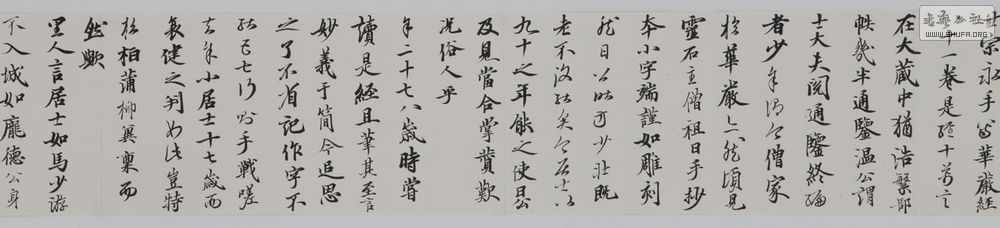 宗永嘉華嚴經
十一卷是經十萬言
在大藏中猶浩繁部
帙幾半通鑒溫公謂
士大夫閱通鑒終編
者少 僧家
於華嚴亦然頃見
靈石主僧祖日手抄
本小字端謹如雕刻
然日公時方少壯既
老不復能矣今居士以
九十之年能之使日公
及見當合掌贊歎
況俗人乎
年二十七八歲時嘗
讀是經且筆其至言
妙義于簡今追思
之了不省記作字不
能三七行必手戰嗟
去年小居士十七歲而
衰健之判如此豈特
松柏蒲柳異稟而
然歟
里人言居士如馬少游
不入城如龐德公身
書法公社
WWW.SHUFA.ORG